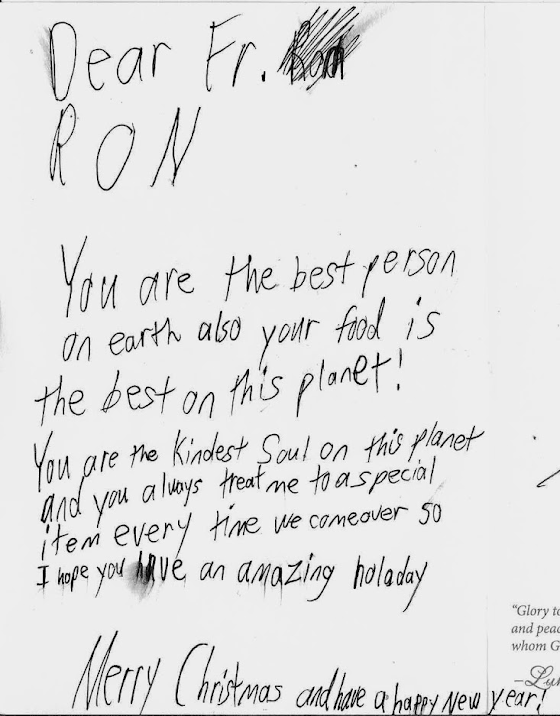 Dear Fr.
RON
You are the best person
on earth also your food is
the best on this planet!
You are the Kindest Soul on this planet
and you always treat me to a special
item every time we come over so
I hope you have an amazing holaday
Merry Christmas and have a happy New year!
"Glory to
and peac
whom G
–Lu